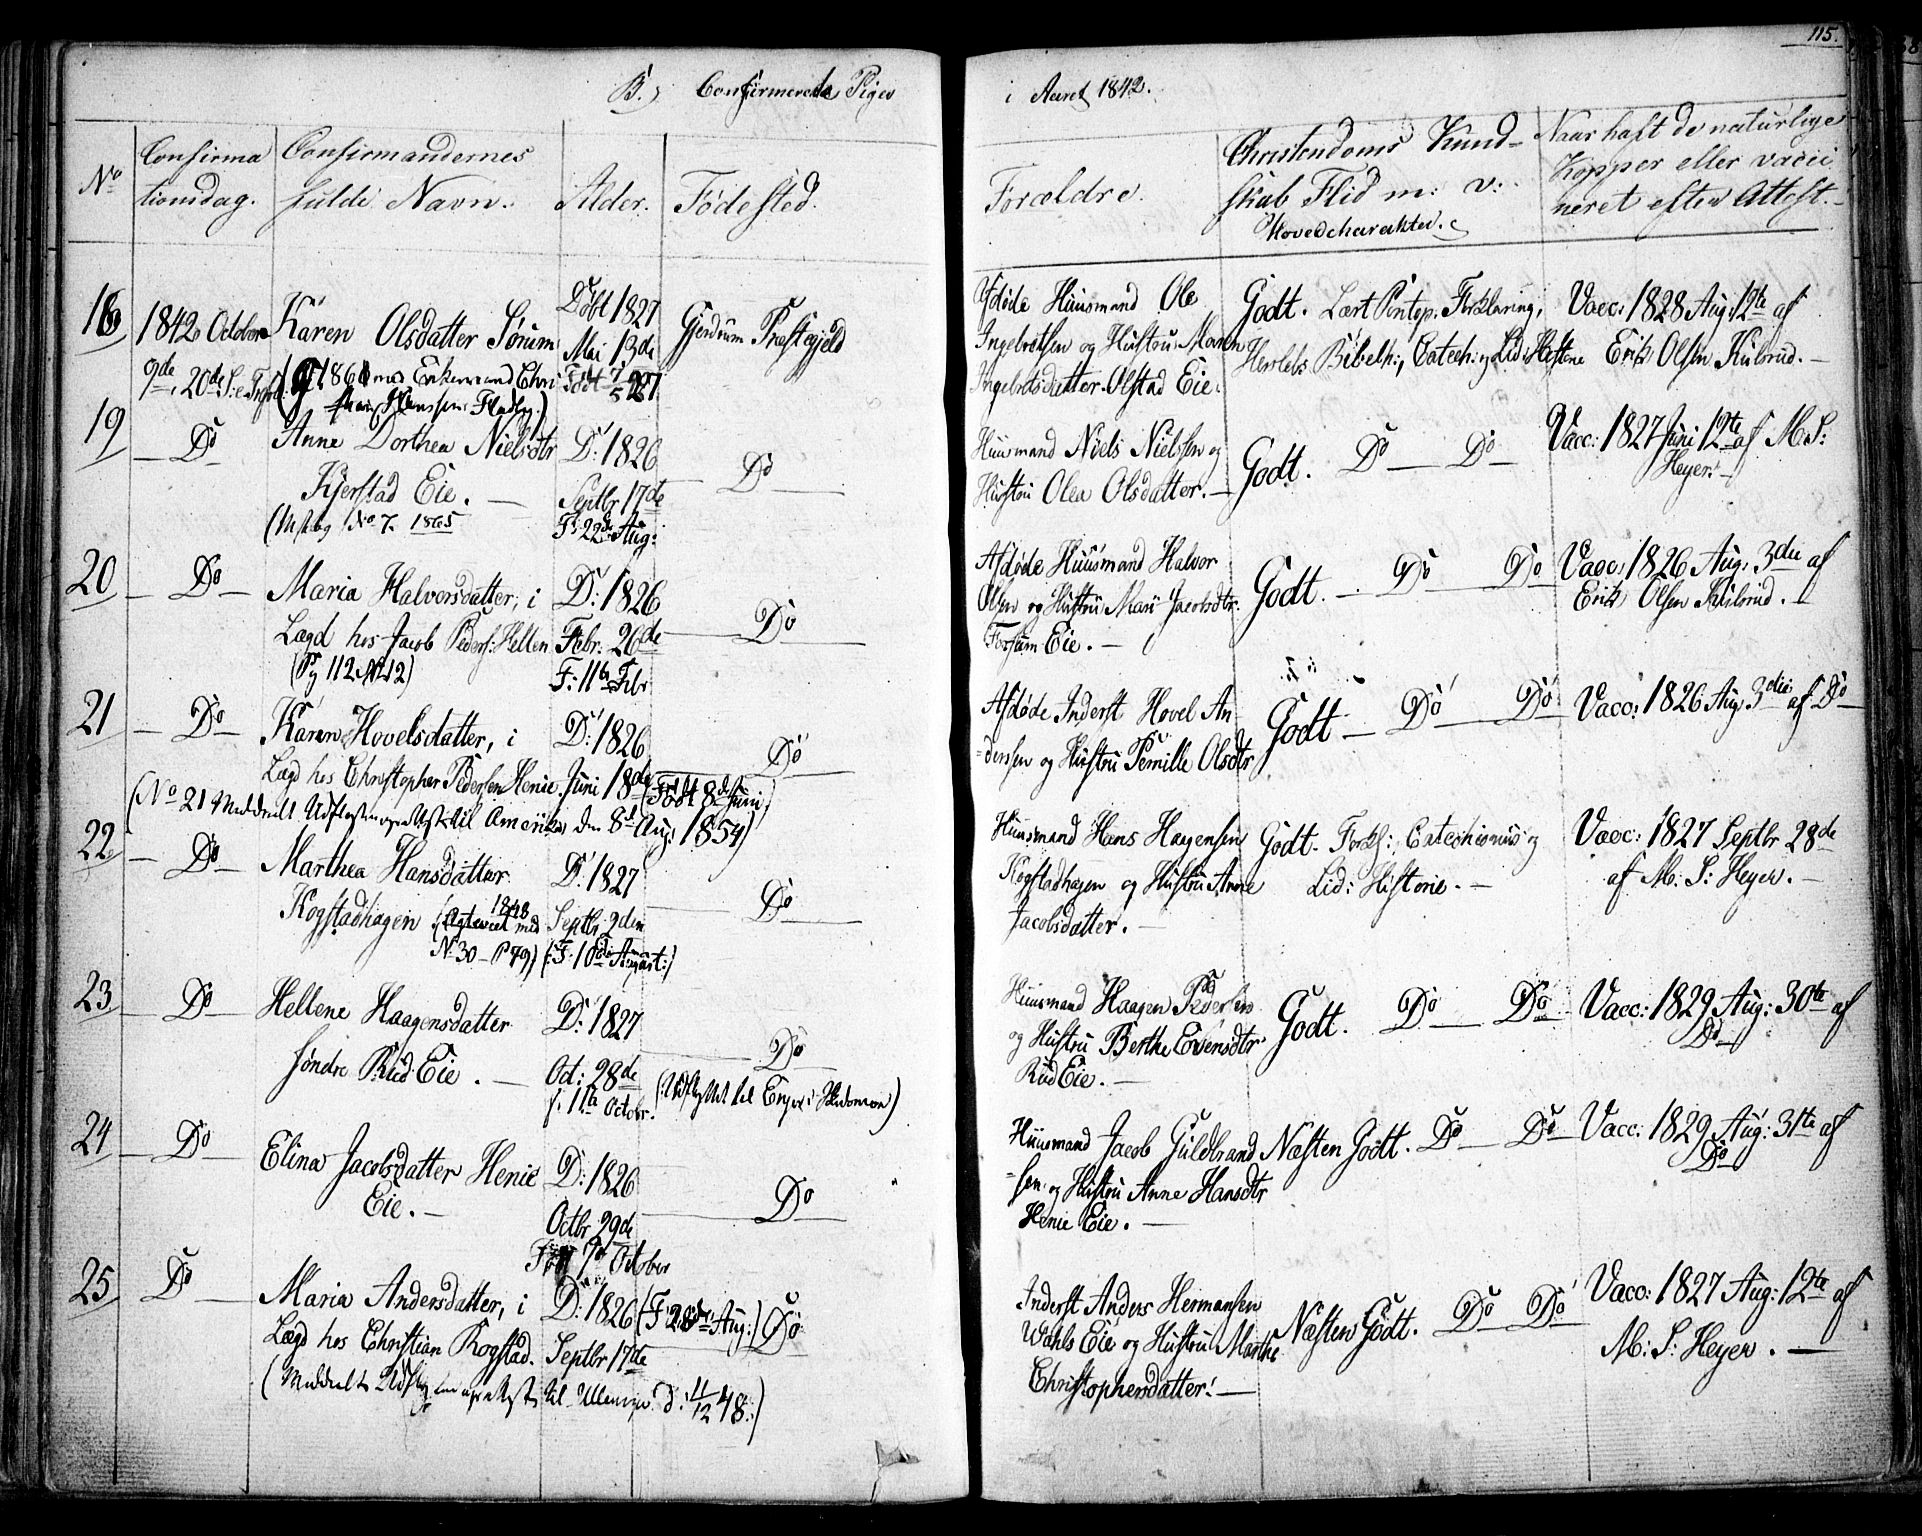 115.
B. Confirmerede Piger
i Aaret 1842.
No
Confirma
tionsdag.
Confirmandernes
fulde Navn.
Alder.
Fødested.
Forældre.
Christendoms Kund-
skab Flid m: v:
Hovedcharakter.
Naar haft de naturlige
Kopper eller vacci
neret efter Attest.
18
1842 October
9de, 20de S. e. Trefol.
Karen Olsdatter Sørum
(G. 1861 med Enkemand Chri
stian Hanssen Fladby.)
Døbt 1827
Mai 13de
Født 7/5 27
Gjerdrum Præstegjeld
Afdøde Huusmand Ole
Ingebretsen og Hustru Maren
Ingebretsdatter Olstad Eie.
Godt. Lært Pontop. Forklaring,
Herslebs Bibelh:, Catech: og Lid: Historie
Vacc: 1828 Aug: 12te af
Erik Olsen Kulsrud. —
19
— Do —
Anne Dorthea Nielsdtr
Kjerstad Eie. —
No 7. 1865
D: 1826
Septbr 17de
F: 22de Aug:
— Do —
Huusmand Niels Nielsen og
Hustru Olea Olsdatter. —
Godt. Do — Do —
Vacc: 1827 Juni 12te af M. S:
Heyer. —
20
— Do —
Maria Halvorsdatter, i
Lægd hos Jacob Peders: Hellen
(Pg 112 No 12)
D: 1826
Febr. 26de
F: 11te Febr
— Do —
Afdøde Huusmand Halvor
Olsen og Hustru Mari Jacobsdtr.
Eie. —
Godt. — Do — Do —
Vacc: 1826 Aug: 3die af
Erik Olsen Kulsrud. —
21
— Do —
Karen Hovelsdatter, i
Lægd hos Christopher Pedersen Henie.
D: 1826
Juni 18de
(Født 8de Juni)
— Do —
(No 21 Meddeelt Udflytningsattest til Amerika den 8de Aug: 1854)
Afdøde Inderst Hovel An
=dersen og Hustru Pernille Olsdtr
Godt — Do — Do —
Vacc: 1826 Aug: 3die af Do —
22
— Do —
Marthea Hansdatter
Kogstadhagen (1848
Ægteviet med
No 30 — P 79)
D: 1827
Septbr 2den
(F. 10de August:)
— Do —
Huusmand Hans Haagensen
Kogstadhagen og Hustru Anne
Jacobsdatter. —
Godt. Forkl:, Catechismus og
Lid: Historie. —
Vacc: 1827 Septbr 28de
af M: S: Heyer. —
23
— Do —
Hellene Haagensdatter
søndre Rud Eie. —
D: 1827
Oct: 28de
f. 11te Octobr.
— Do —
Huusmand Haagen Pedersen
og Hustru Berthe Evensdtr
Rud Eie. —
Godt. Do — Do —
Vacc: 1829 Aug: 30te af
Do —
24
— Do —
Elina Jacobsdatter Henie
Eie. —
D: 1826
Octbr 29de
Født 7de October
— Do —
Huusmand Jacob Guldbrand
=sen og Hustru Anne Hansdtr
Henie Eie. —
Næsten Godt. Do — Do —
Vacc: 1829 Aug: 31te af
Do
25
Do —
Maria Andersdatter, i
Lægd hos Christian Kogstad.
D: 1826
Septbr 17de
(F. Aug:)
Do
(Meddeelt til d: 11/12 48.)
Inderst Anders Hermansen
Wahls Eie og Hustru Marthe
Christophersdatter. —
Næsten Godt. Do — Do —
Vacc: 1827 Aug: 12te af
M: S: Heyer. —